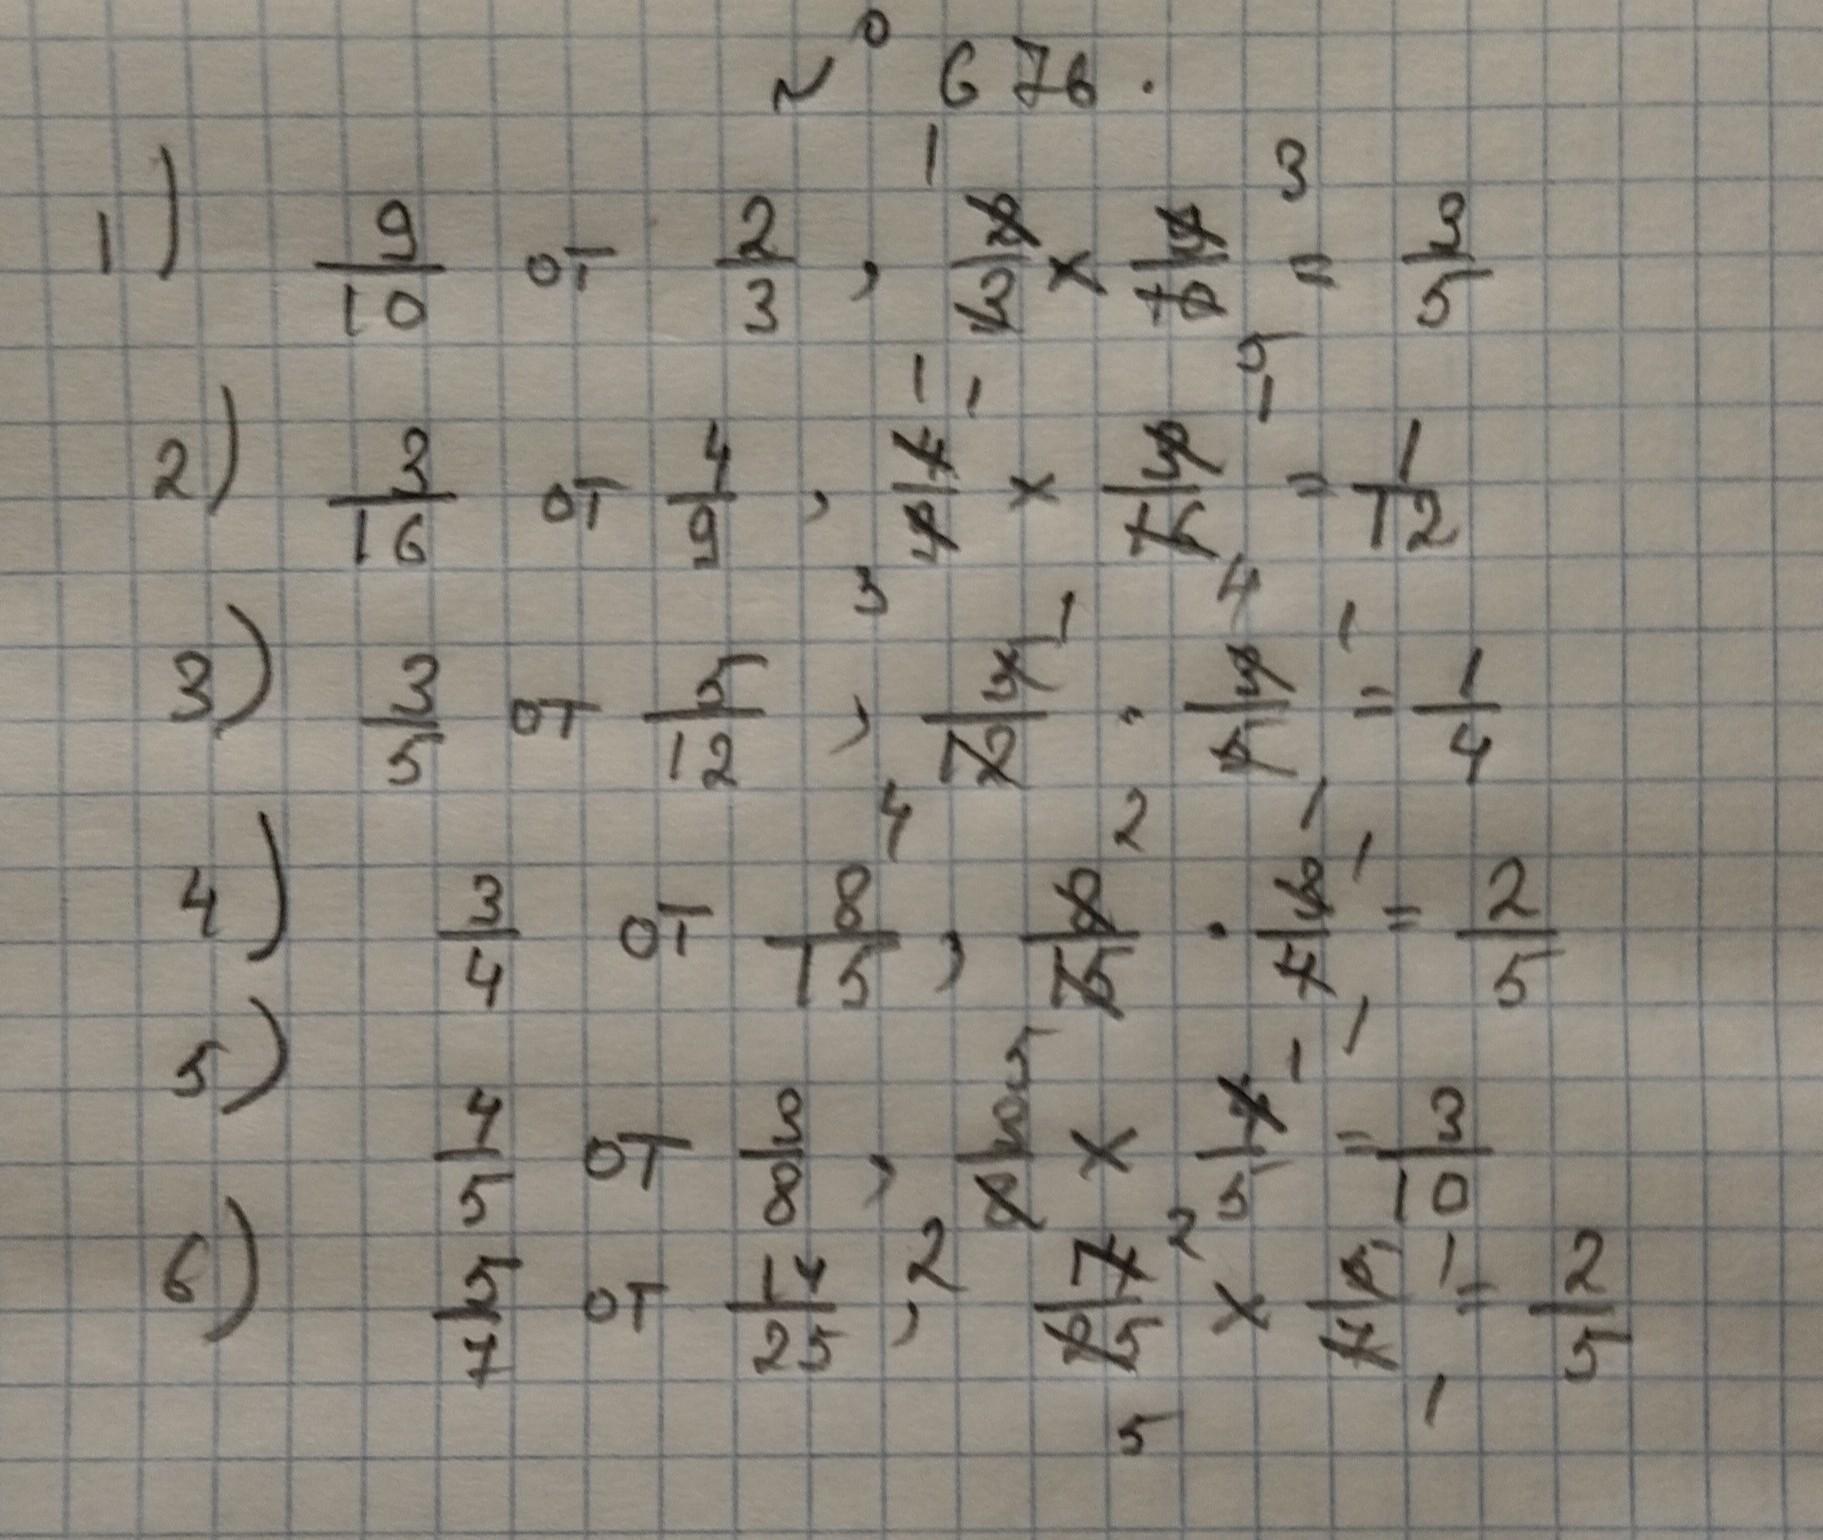 № 676.
1) 9/10 от 2/3, 2/3 × 9/10 = 3/5
2) 3/16 от 4/9, 4/9 × 3/16 = 1/12
3) 3/5 от 5/12, 5/12 · 3/5 = 1/4
4) 3/4 от 8/15, 8/15 · 3/4 = 2/5
5) 4/5 от 3/8, 3/8 × 4/5 = 3/10
6) 5/7 от 14/25, × 5/7 = 2/5